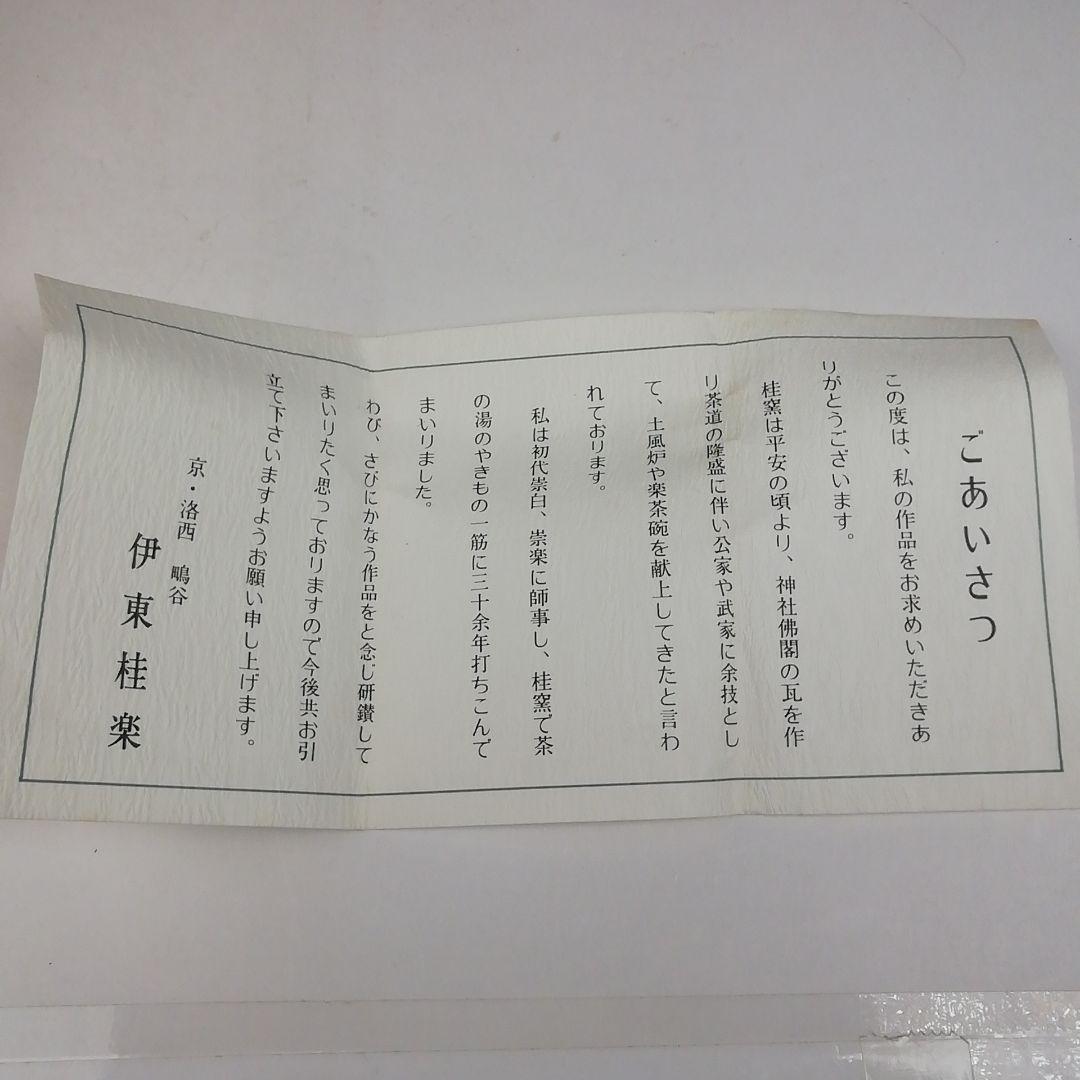 ごあいさつ
この度は、私の作品をお求めいただきあ
りがとうございます。
桂窯は平安の頃より、神社佛閣の瓦を作
り茶道の隆盛に伴い公家や武家に余技とし
て、土風炉や楽茶碗を献上してきたと言わ
れております。
私は初代崇白、崇楽に師事し、桂窯で茶
の湯のやきもの一筋に三十余年打ちこんで
まいりました。
わび、さびにかなう作品をと念じ研鑚して
まいりたく思っておりますので今後共お引
立て下さいますようお願い申し上げます。
京・洛西 鴫谷
伊東桂楽